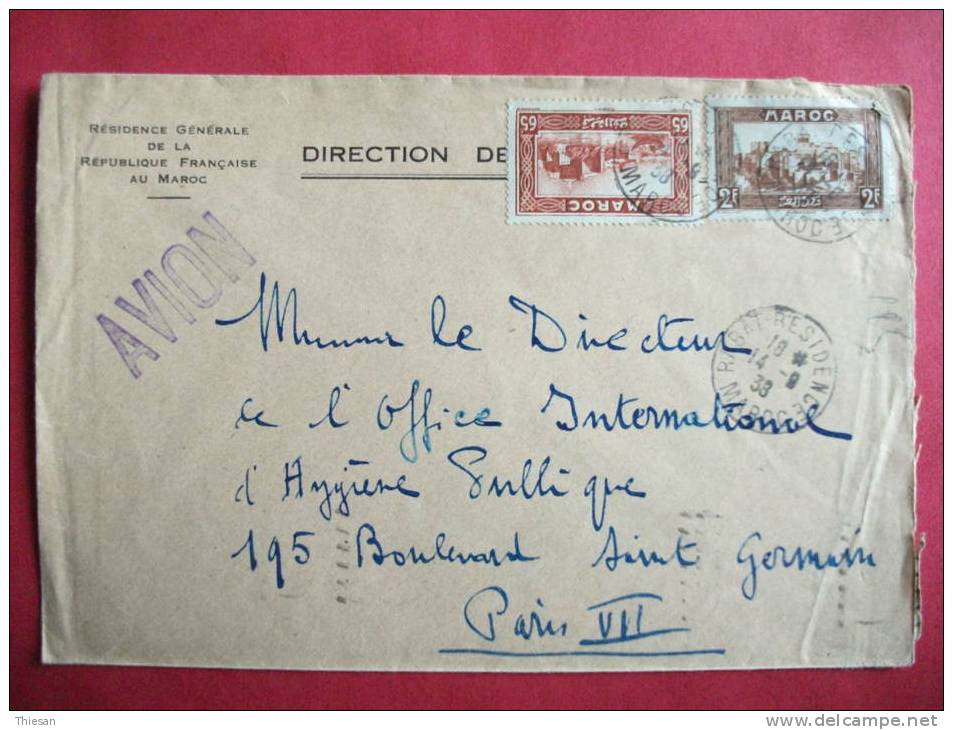 RÉSIDENCE GÉNÉRALE
DE LA
RÉPUBLIQUE FRANÇAISE
AU MAROC
DIRECTION DE
65 65
MAROC
MAROC
2F 2F
AVION
RABAT-RÉSIDENCE
18 *
14 -9
38
MAROC
Monsieur le Directeur
de l'Office International
d'Hygiène Publique
195 Boulevard Saint Germain
Paris VII
Thiesan
www.delcampe.net